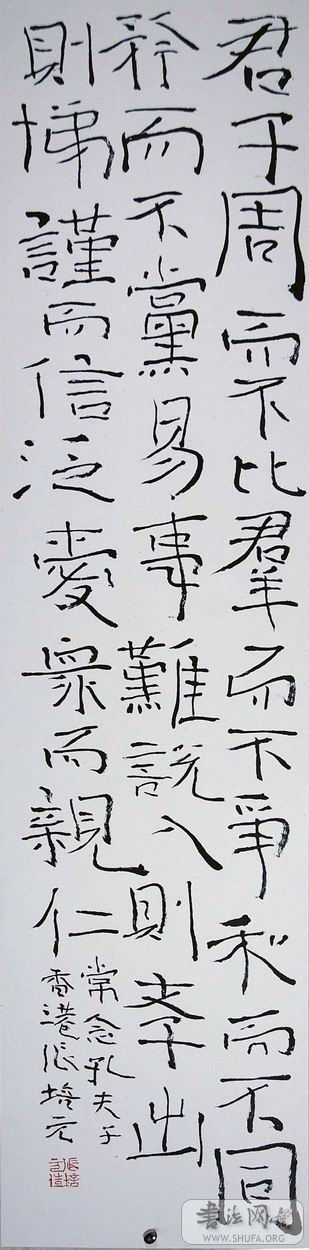 君子周而不比羣而不爭和而不同
矜而不黨易事難説入則孝出
則悌謹而信泛愛衆而親仁
常念孔夫子
香港張培元
書法网
WWW.SHUFA.ORG